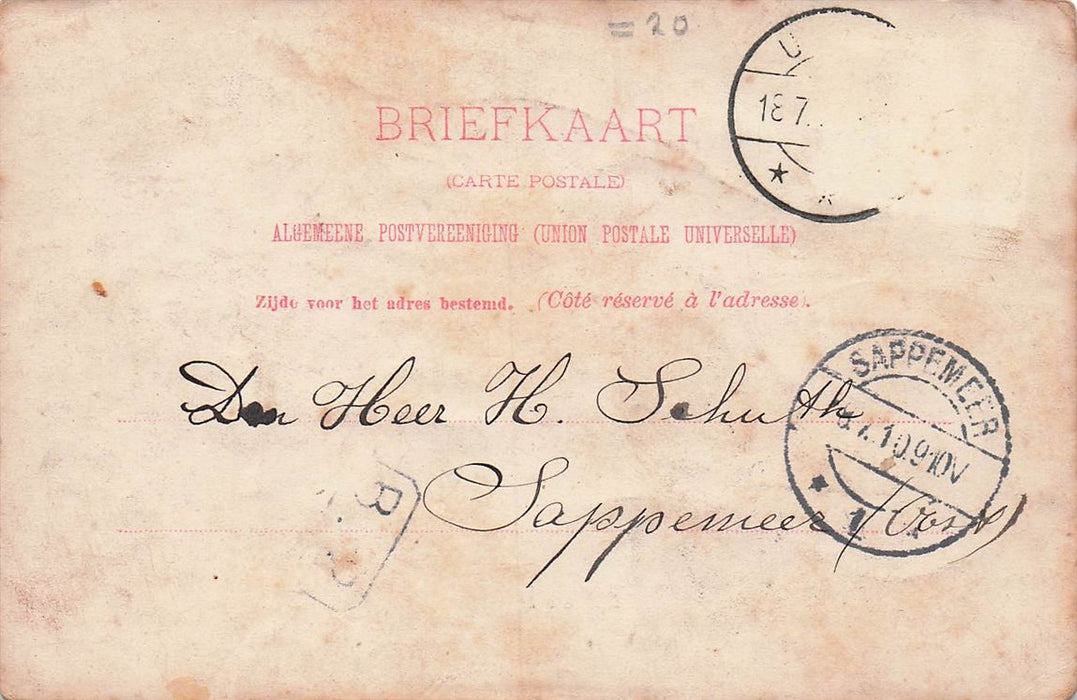 = 20
18 7
BRIEFKAART
(CARTE POSTALE)
ALGEMEENE POSTVEREENIGING (UNION POSTALE UNIVERSELLE)
Zijde voor het adres bestemd. (Côté réservé à l'adresse).
SAPPEMEER
Den Heer H. Schuth
1
Sappemeer (Oost)